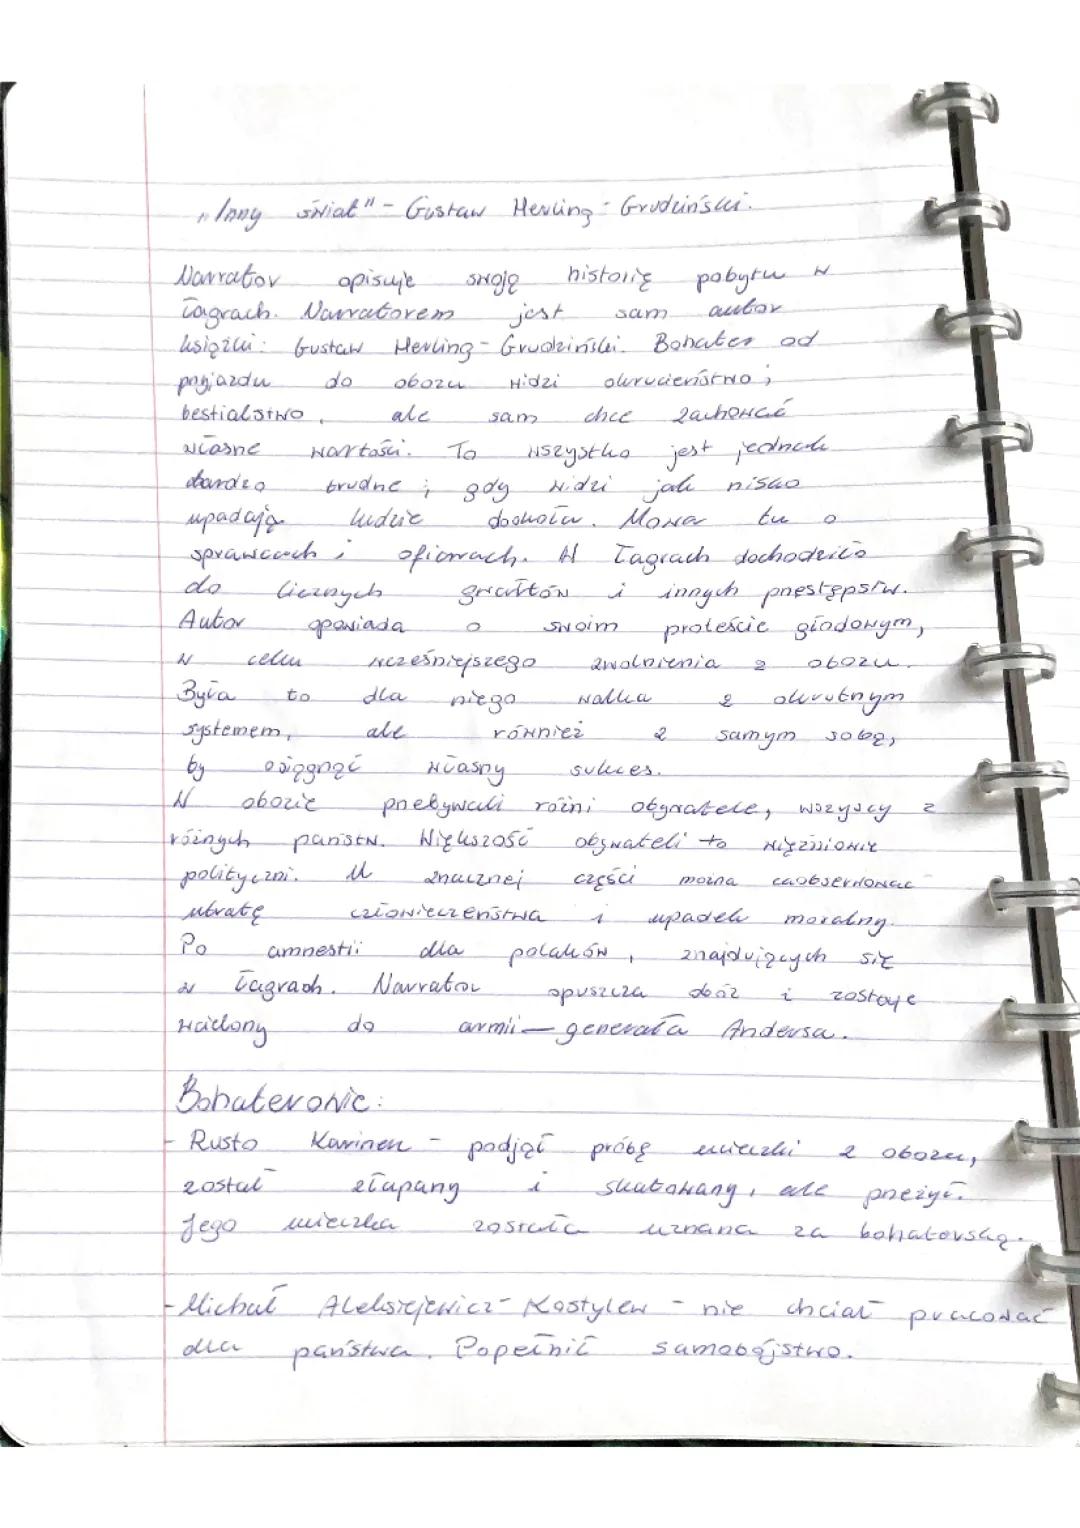 „Inny świat" - Gustaw Herling - Grudziński.
Narrator opisuje swoję historię pobytu w
łagrach. Narratorem jest sam autor
książki: Gustaw Herling - Grudziński. Bohater od
przyjazdu do obozu widzi okrucieństwo i
bestialstwo, ale sam chce zachować
własne wartości. To wszystko jest jednak
bardzo trudne ; gdy widzi jak nisko
upadają ludzie dookoła. Mowa tu o
sprawcach i ofiarach. W łagrach dochodziło
do licznych gwałtów i innych przestępstw.
Autor opowiada o swoim proteście głodowym,
w celu wcześniejszego zwolnienia z obozu.
Była to dla niego walka z okrutnym
systemem, ale również z samym sobą,
by osiągnąć własny sukces.
W obozie przebywali różni obywatele, wszyscy z
różnych państw. Większość obywateli to więźniowie
polityczni. U znacznej części można zaobserwować
utratę człowieczeństwa i upadek moralny.
Po amnestii dla polaków, znajdujących się
w łagrach. Narrator opuszcza obóz i zostaje
wcielony do armii — generała Andersa.
Bohaterowie:
- Rusto Karinen - podjął próbę ucieczki z obozu,
został złapany i skatowany, ale przeżył.
Jego ucieczka została uznana za bohaterską.
- Michał Aleksiejewicz - Kostylew - nie chciał pracować
dla państwa. Popełnił samobójstwo.